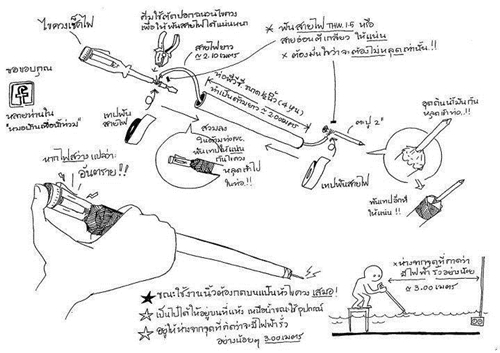 ไขควงเช็คไฟ
ขอขอบคุณ
หลายท่านใน
คีมใช้ตัดปลอกฉนวนไขควง
เพื่อให้พันสายไฟได้แน่นหนา
สายไฟยาว
≈ 2.10 เมตร
* พันสายไฟ THW. 1.5 หรือ
สายอ่อนตีเกลียว ให้แน่น
* ต้องมั่นใจว่าจะต้องไม่หลุดเท่านั้น!!
ท่อพีวีซี ขนาด ½ นิ้ว (4 หุน)
≈ 2.00 เมตร
เทปพัน
สายไฟ
ตะปู 2"
เทปพันสายไฟ
สวมลง
พันเทปให้แน่น
กันไขควง
หลุดเข้าไป
ในท่อ!!
อุดดินน้ำมันกัน
พันเทปอีกที
ให้แน่น!!
หากไฟสว่างแปลว่า
อันตราย!!
★ ขณะใช้งานนิ้วต้องกดบนแป้นหัวไขควง เสมอ!
☆ เป็นไปได้ให้อยู่บนที่แห้ง เหนือน้ำขณะใช้อุปกรณ์
☆ อยู่ให้ห่างจากจุดที่คิดว่าจะมีไฟฟ้ารั่ว
อย่างน้อยๆ 3.00 เมตร
* ห่างจากจุดที่คาดว่า
มีไฟฟ้ารั่วอย่างน้อย
≈ 3.00 เมตร